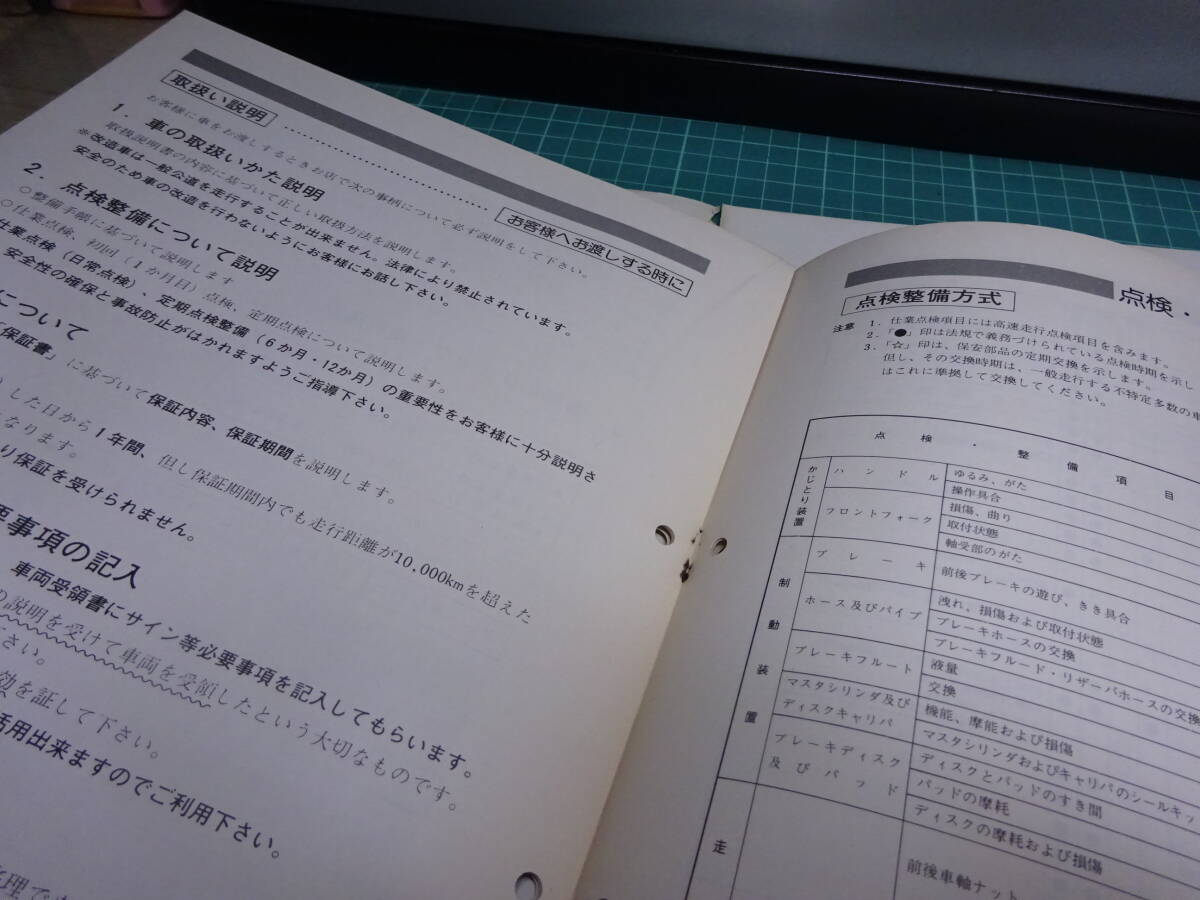 取扱い説明
お客様へお渡しする時に
お客様に車をお渡しするときお店で次の事柄について必ず説明をして下さい。
1. 車の取扱いかた説明
取扱説明書の内容に基づいて正しい取扱方法を説明します。
※改造車は一般公道を走行することが出来ません。法律により禁止されています。
安全のため車の改造を行わないようにお客様にお話し下さい。
2. 点検整備について説明
○整備手帳に基づいて説明します
○仕業点検、初回(1か月目)点検、定期点検について説明します。
仕業点検(日常点検)、定期点検整備(6か月・12か月)の重要性をお客様に十分説明さ
安全性の確保と事故防止がはかれますようご指導下さい。
について
保証書」に基づいて保証内容、保証期間を説明します。
した日から1年間、但し保証期間内でも走行距離が10,000kmを超えた
なります。
り保証を受けられません。
事項の記入
車両受領書にサイン等必要事項を記入してもらいます。
の説明を受けて車両を受領したという大切なものです。
さい。
効を証して下さい。
活用出来ますのでご利用下さい。
点検・
点検整備方式
注意 1. 仕業点検項目には高速走行点検項目を含みます。
2.「●」印は法規で義務づけられている点検時期を示し
3.「☆」印は、保安部品の定期交換を示します。
但し、その交換時期は、一般走行する不特定多数の車
はこれに準拠して交換してください。
点検・整備項目
かじとり装置
ハンドル
ゆるみ、がた
操作具合
フロントフォーク
損傷、曲り
取付状態
軸受部のがた
制動装置
ブレーキ
前後ブレーキの遊び、きき具合
ホース及びパイプ
洩れ、損傷および取付状態
ブレーキホースの交換
ブレーキフルード・リザーバホースの交換
ブレーキフルート
液量
交換
マスタシリンダ及びディスクキャリパ
機能、摩耗および損傷
マスタシリンダおよびキャリパのシールキッ
ブレーキディスク及びパッド
ディスクとパッドのすき間
パッドの摩耗
ディスクの摩耗および損傷
走
前後車軸ナット